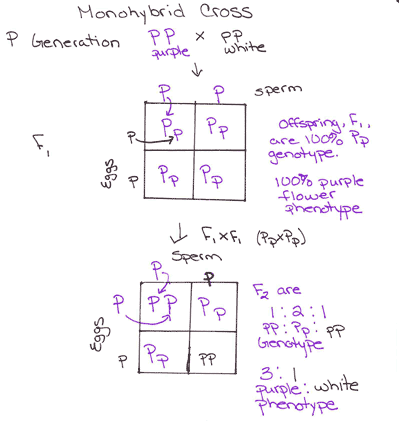 Monohybrid Cross
P Generation PP x pp
purple white
P P sperm
F₁
Eggs
p Pp Pp
p Pp Pp
Offspring, F₁,
are 100% Pp
genotype.
100% purple
flower
phenotype
F₁ x F₁ (Pp x Pp)
Sperm
P p
Eggs
P PP Pp
p Pp pp
F₂ are
1 : 2 : 1
PP : Pp : pp
Genotype
3 : 1
purple : white
phenotype